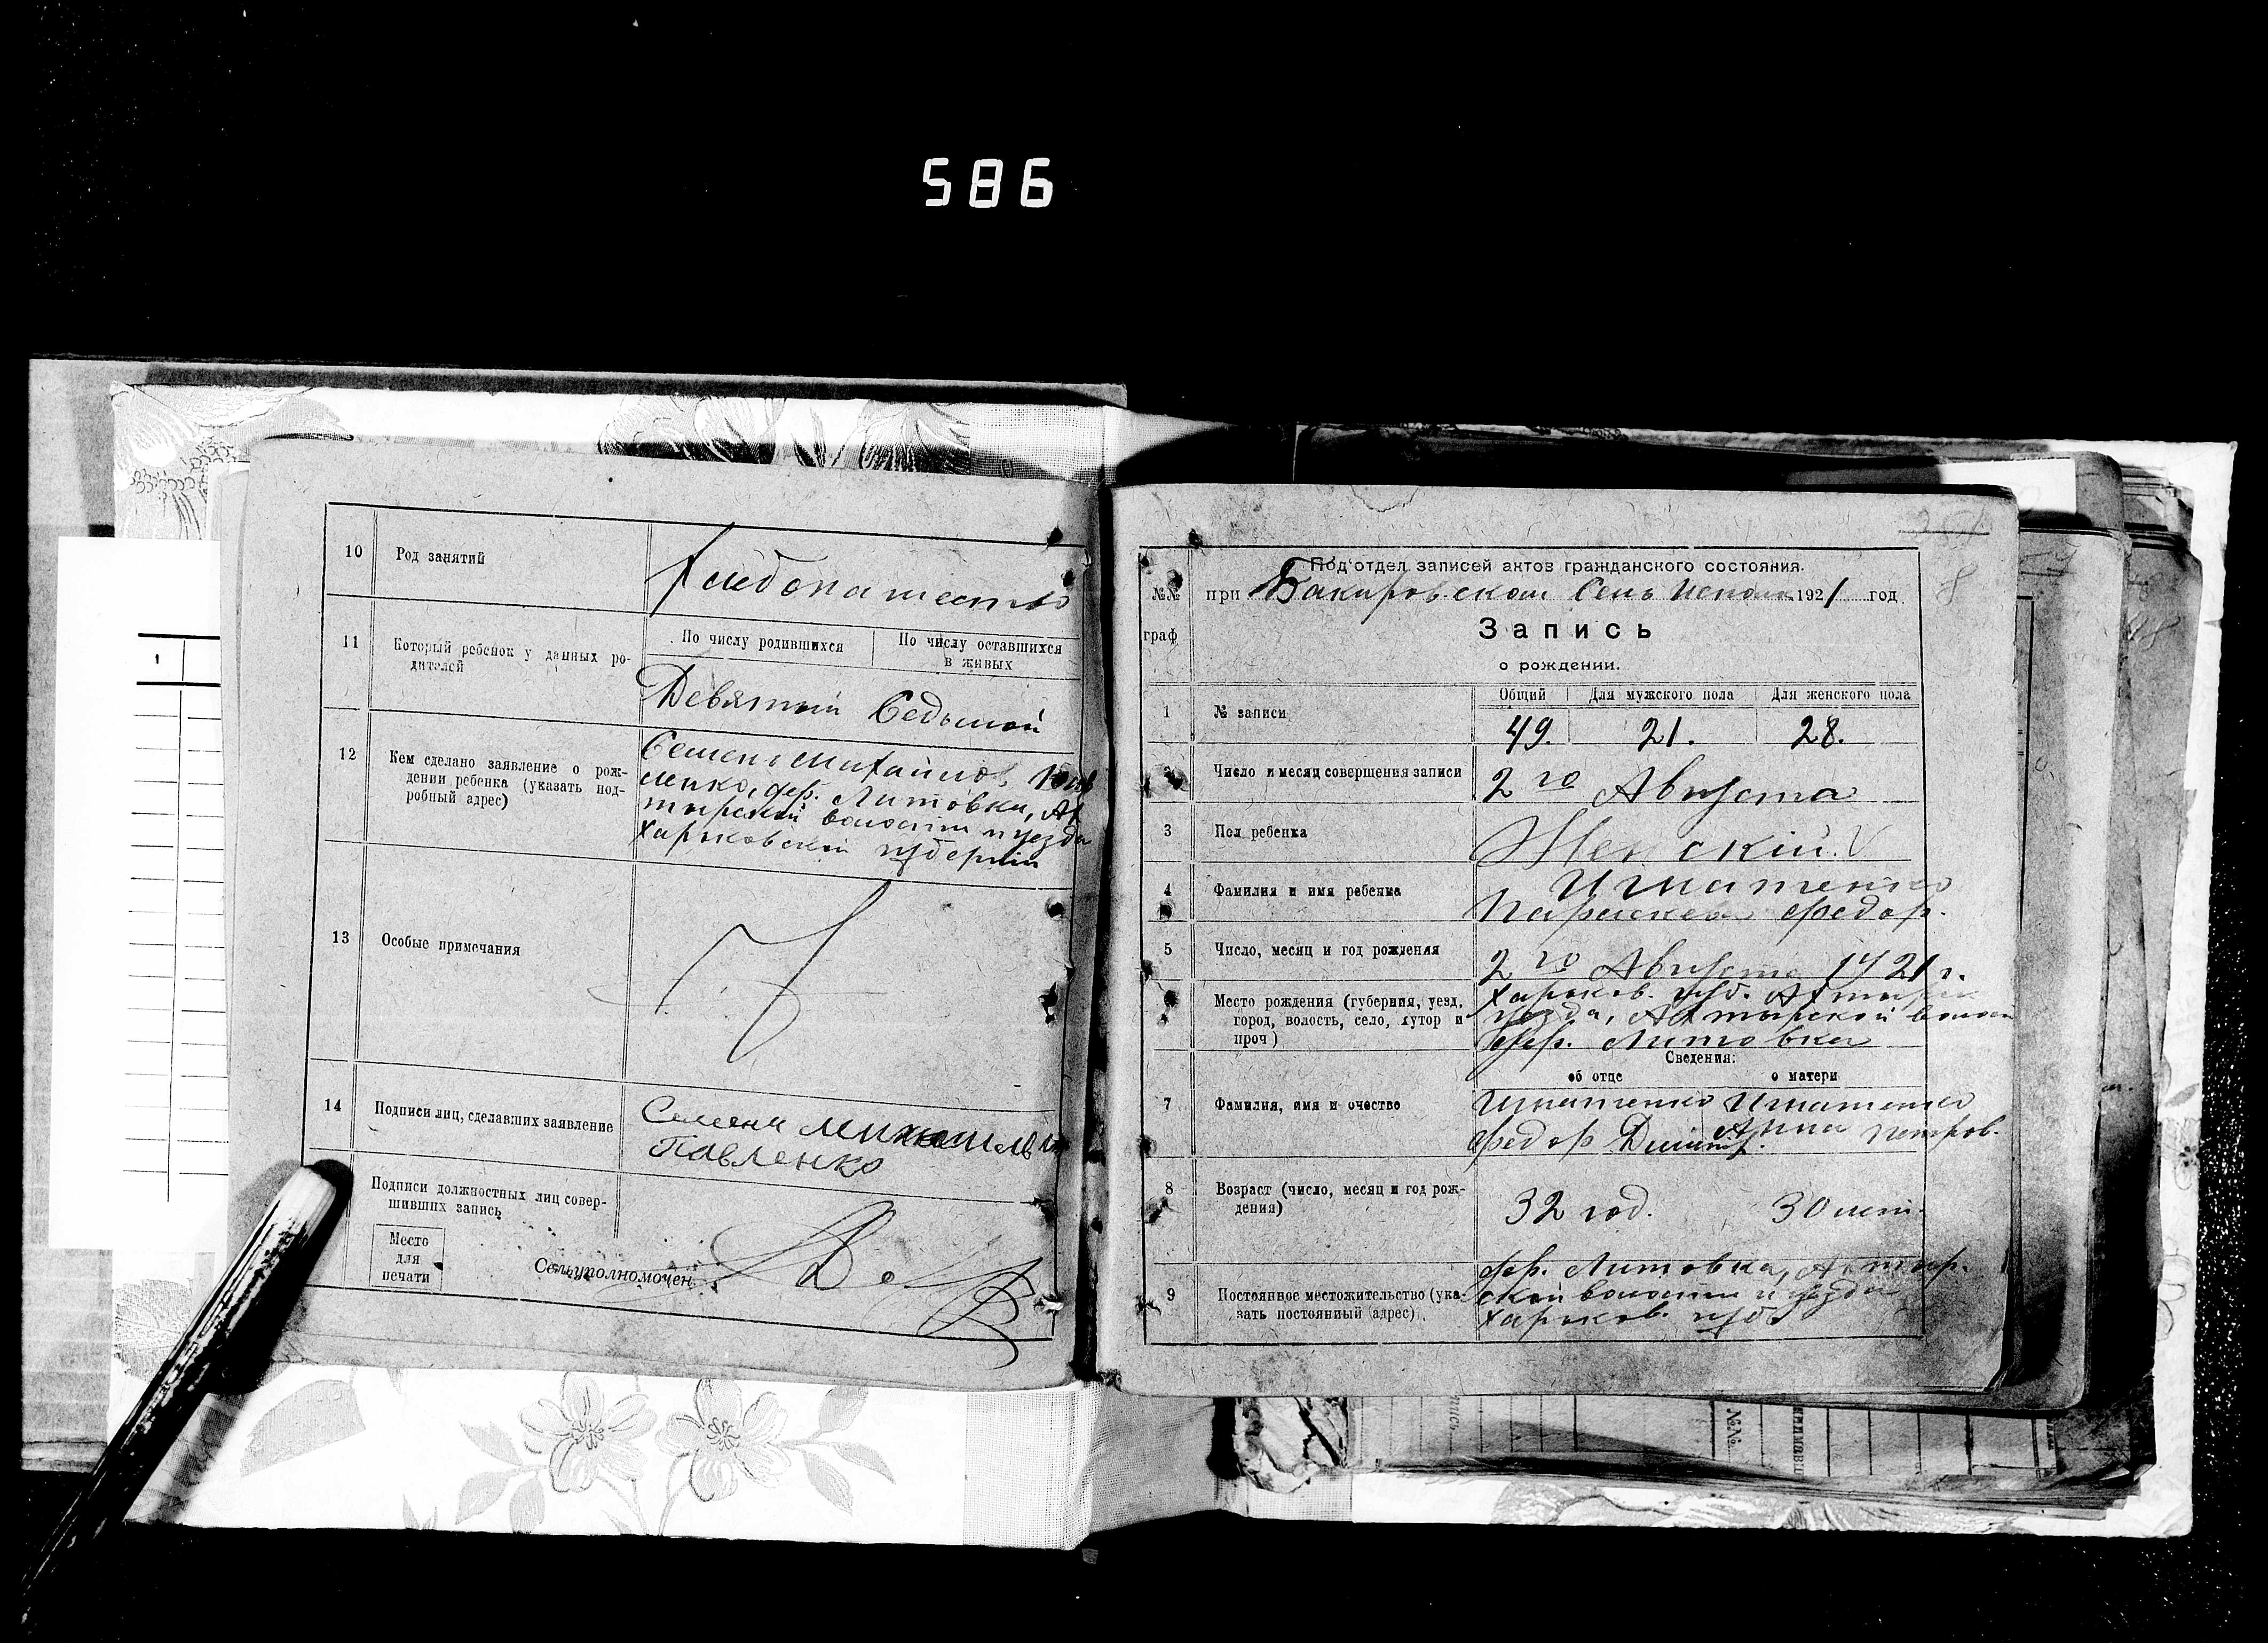 586
10 Род занятий
Хлебопашество
11 Который ребенок у данных ро-
дителей
По числу родившихся По числу оставшихся
в живых
Девятый Седьмой
12 Кем сделано заявление о рож-
дении ребенка (указать под-
робный адрес)
Семен Михайлов Пав
ленко, дер. Литовка, Ах
тырской волости и уезда
Харьковской губернии
13 Особые примечания
14 Подписи лиц, сделавших заявление
Семен Михайлов
Павленко
Подписи должностных лиц совер-
шивших запись
Место
для
печати
Сельуполномочен.
Под'отдел записей актов гражданского состояния.
№№ при Бакировском Сель Исполк 1921 год
граф
8
Запись
о рождении.
1 № записи
Общий Для мужского пола Для женского пола
49. 21. 28.
2 Число и месяц совершения записи
2го Августа
3 Пол ребенка
Женскій V
4 Фамилия и имя ребенка
Игнатенко
Параскева Федор.
5 Число, месяц и год рождения
2го Августа 1921 г.
Место рождения (губерния, уезд,
город, волость, село, хутор и
проч)
Харьков. губ. Ахтырск
уезда, Ахтырской волос
дер. Литовка
Сведения:
об отце о матери
7 Фамилия, имя и очество
Игнатенко Игнатенко
Федор Димитр. Анна Петров.
8 Возраст (число, месяц и год рож-
дения)
32 год. 30 лет.
9 Постоянное местожительство (ука-
зать постоянный адрес)
дер. Литовка, Ахтыр.
ской волости и уезда
Харьков. губ.
№№
1